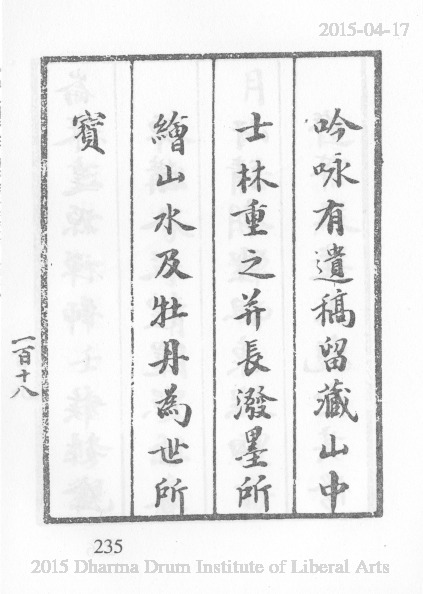 2015-04-17
吟咏有遺稿留藏山中
士林重之并長潑墨所
繪山水及牡丹為世所
寳
一百十八
235
2015 Dharma Drum Institute of Liberal Arts